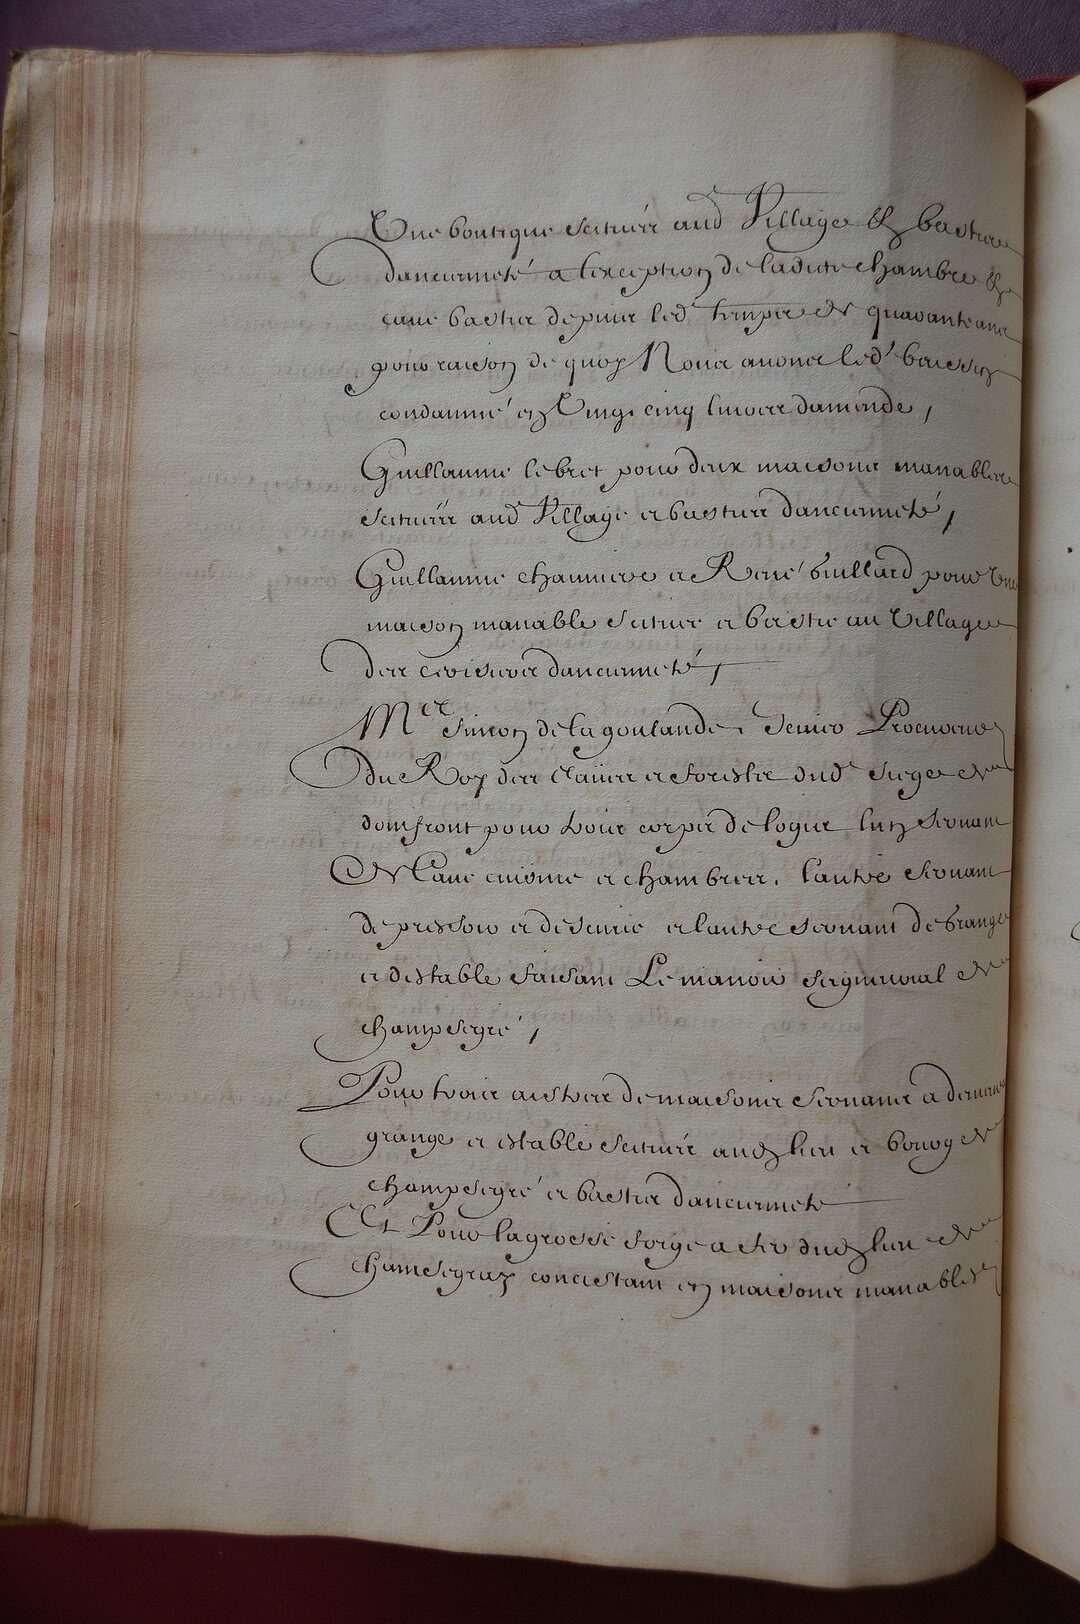 Une boutique scituée aud Village Et bastie
dancienneté a lexception de ladite chambre Et
cave bastie depuis led temps de quarante ans
pour raison de quoy Nous avons led baissin
condamné en Vingt cinq livres damende,
Guillaume lebret pour deux maisons manables
scituées aud Village et basties dancienneté,
Guillaume chauniere et René Guillard pour Une
maison manable scituée et bastie au Village
des croiseres dancienneté,
Me Simon de la goulande, Procureur
du Roy des Eaues et forests dud siege de
domfront pour trois corps de logis lun servant
de Cave cuisine et chambres, lautre servant
de pressoir et descurie et lautre servant de Grange
et destable faisant Le manoir seigneurial de
champsegré,
Pour trois autres de maisons servants a demeure
grange et estable scituées aud lieu et bourg de
champsegré et basties dancienneté
Et Pour la grosse forge a fer dud lieu de
chamsegray concistant en maisons manables